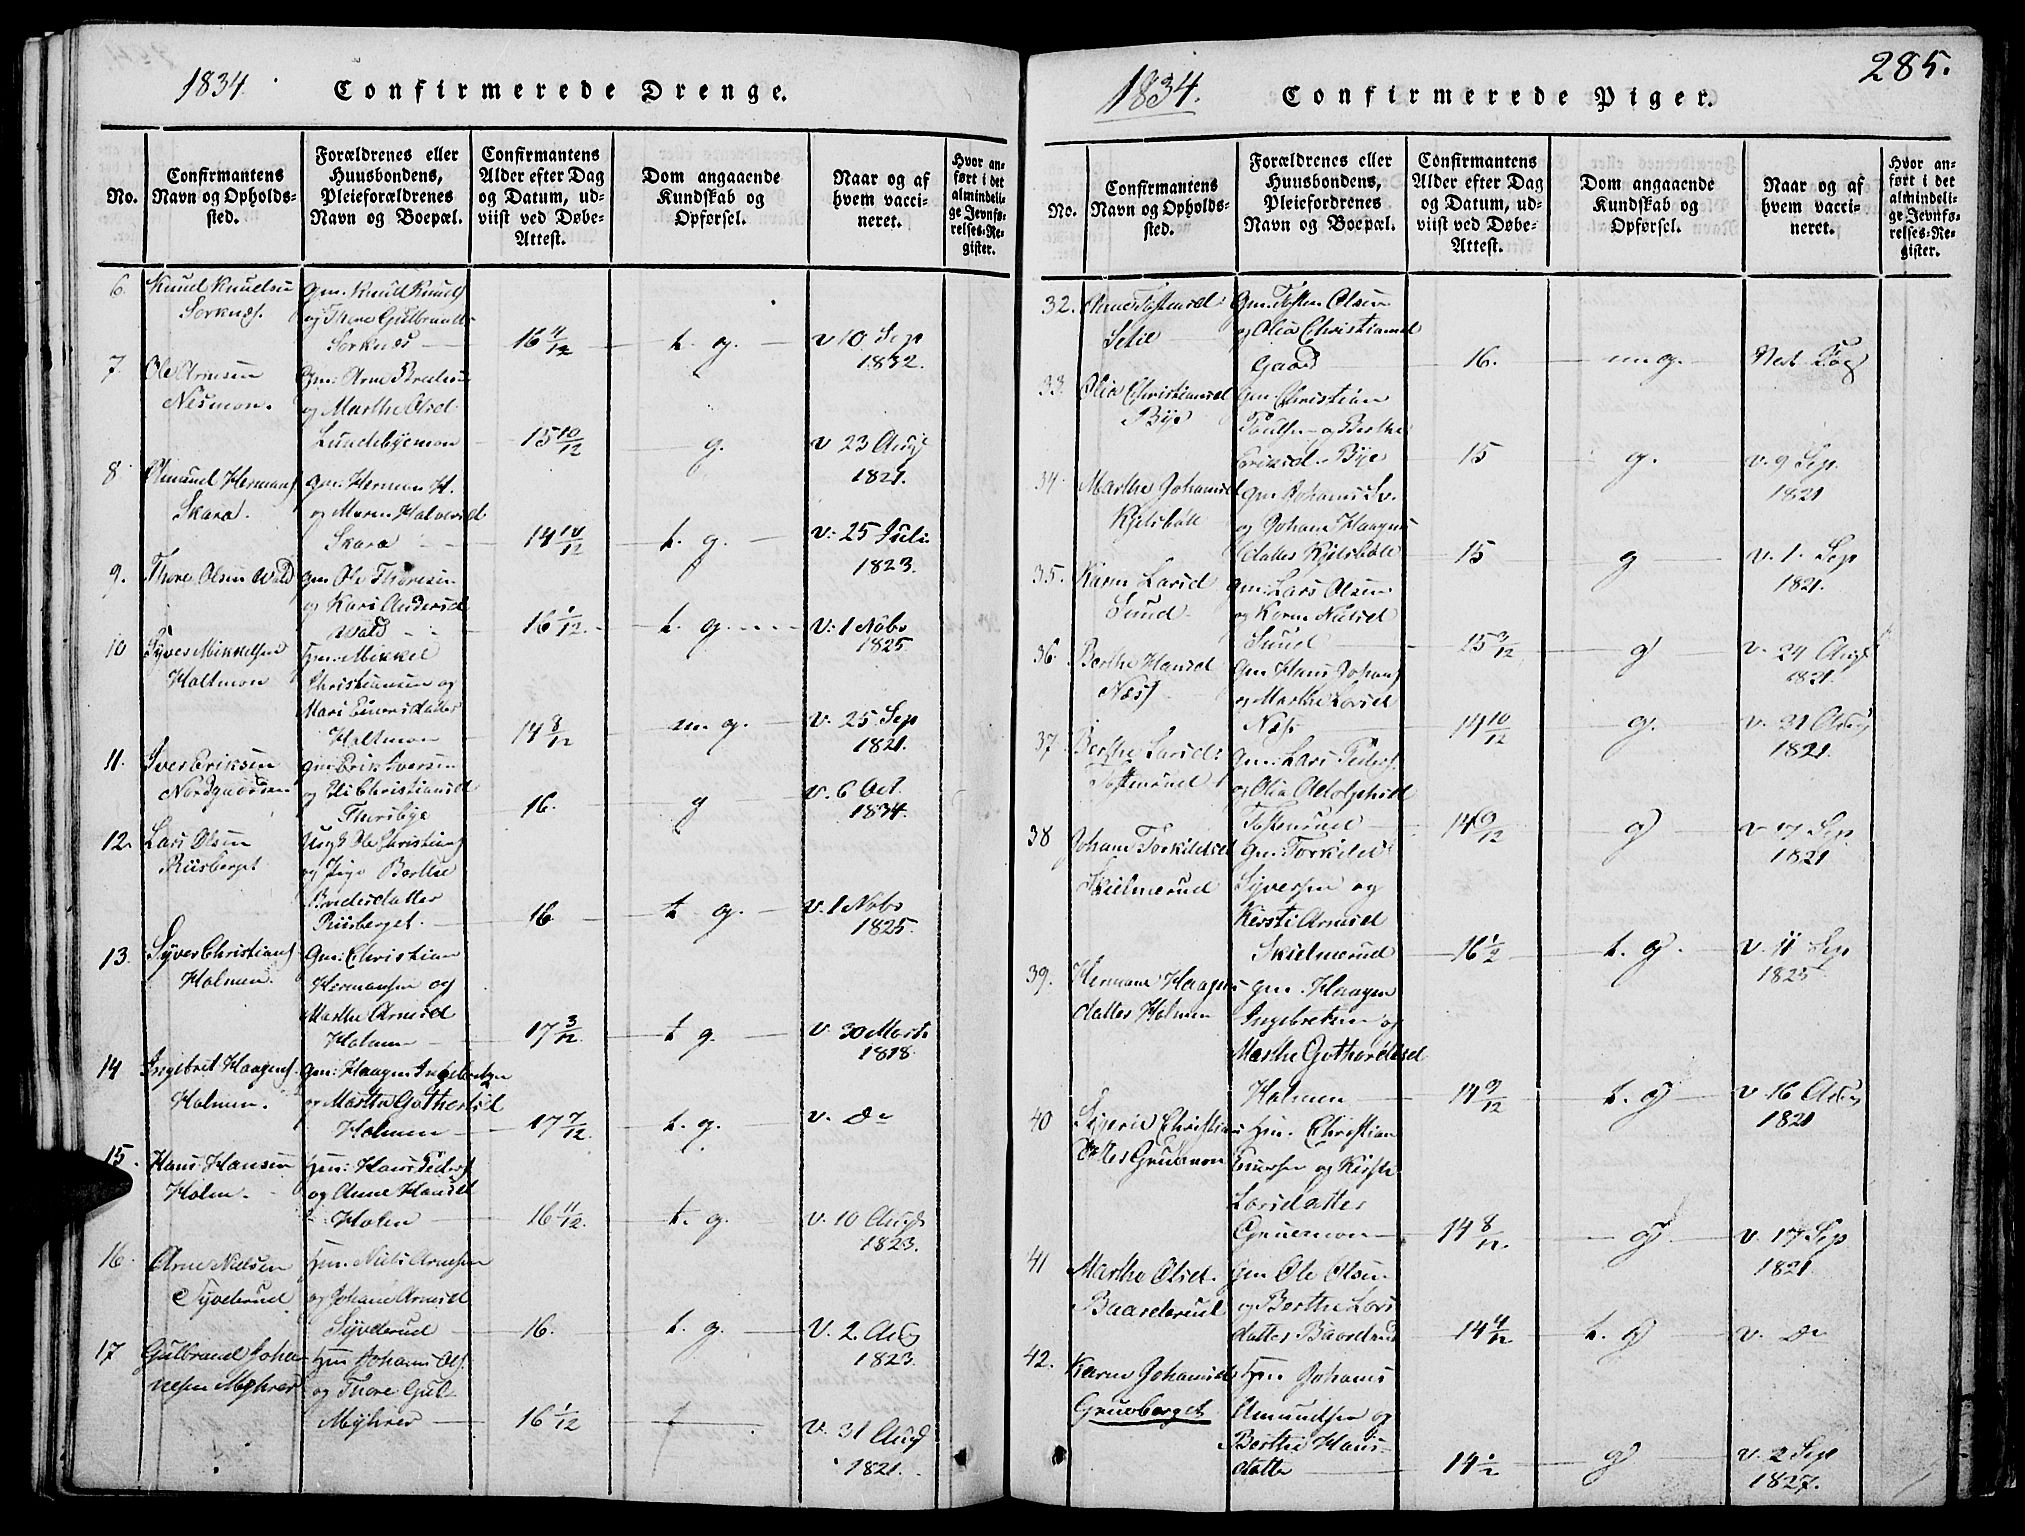 1834.
Confirmerede Drenge.
No.
Confirmantens
Navn og Opholds-
sted.
Forældrenes eller
Huusbondens,
Pleieforældrenes
Navn og Boepæl.
Confirmantens
Alder efter Dag
og Datum, ud-
viist ved Døbe-
Attest.
Dom angaaende
Kundskab og
Opførsel.
Naar og af
hvem vacci-
neret.
Hvor an-
ført i det
almindeli-
ge Jevnfø-
relses-Re-
gister.
6. Knud Knudsen
Sorknæs.
gm. Knud Knuds
og Thore Gulbrands
Sorknæs
16 4/12
t. g.
v 10 Sep
1832.
7 Ole Arnesen
Nesmon.
og Marthe Olsd
Lundebyemon
15 10/12
g.
v. 23 Aug
1821.
8 Amund Hermans
Skara.
gm. Herman H.
og Maren Halvorsd
Skara
14 10/12
t. g.
v: 25 Juli
1823.
9. Thore Olsen Wald
gm Ole Thoresen
og Kari Andersd
Wald
16 1/12.
t. g.
v: 1 Nobr
1825.
10 Syver Mikkelsen
Holtmon
gm: Mikkel
Christiansen og
Mari Einersdatter
Holtmon
14 8/12
m g.
v. 25 Sep
1821.
11. Iver Eriksen
gm: Erik Iversen
og Christiansd
Thorsbye
16.
g
v. 6 Oct.
1834.
12. Lars Olsen
Riisberget
Ole Christians
og Pige Berthe
Riisberget.
16
t g.
v. 1 Nobr
1825.
13. Syver Christians
Holmen.
gm: Christian
Hermansen og
Marthe Arnesd
Holmen
17 3/12
t g.
v. 30 Marts
1818.
14 Ingebret Haagens
Holmen.
gm: Haagen Ingebretsen
og Marthe
Holmen
17 7/12
t. g.
v. do
15. Hans Hansen
Holen.
gm: Hans Peders
og Anne Hansd
Holen
16 11/12.
t. g.
v. 10 Aug
1823.
16. Arne Nielsen
Syverud
gm. Niels Arnesen
og Johane Arnesd
16.
t. g.
v. 2 Aug
1823.
17 Gulbrand Johan-
nesen Myhrer
gm Johans Ols.
og Thore Gul
Myhrer
16 1/12
v. 31 Aug
1821.
1834.
Confirmerede Piger.
285.
No.
Confirmantens
Navn og Opholds-
sted.
Forældrenes eller
Huusbondens,
Pleiefordrenes
Navn og Boepæl.
Confirmantens
Alder efter Dag
og Datum, ud-
viist ved Døbe-
Attest.
Dom angaaende
Kundskab og
Opførsel.
Naar og af
hvem vacci-
neret.
Hvor an-
ført i det
almindeli-
ge Jevnfø-
relses-Re-
gister.
32.
gm. Tosten Olsen
og Olia Christiansd
Gaard
16.
m g.
33. Olia Christiansd
Bye
gm. Christian
Poulsen og Berthe
Bye
15
g.
v. 9 Sep.
1821
34. Marthe Johansd
gm Johans
og Johane Haagens
datter
15
g
v. 1. Sep
1821.
35. Karen Larsd
Sund.
gm: Lars Olsen
og Karen Nielsd
Sund
15 3/12
g
v. 24 Aug
1821.
36. Berthe Hansd
Næss.
gm Hans Johans
og Marthe Larsd
Næss
14 10/12
g.
v. 21 Aug
1821.
37. Berthe Larsd:
gm: Lars Peders.
og Olia
14 9/12
g
v 17 Sep
1821
38 Johane Torkildsd
Skielmerud
gm: Torkild
Syversen og
Kersti Arnesd
Skielmerud
16 1/2
t. g.
v. 11 Sep
1825.
39. Hermane Haagens
datter Holmen
gm. Haagen
Ingebretsen og
Marthe
Holmen
14 9/12
t. g
v. 16 Aug
1821
40 Sigrie Christians
Gruemon
gm. Christian
og Kirsti
Larsdatter
Gruemon
14 8/12.
g
v. 17 Sep
1821.
41 Marthe Olsd.
Baarderud
gm Ole Olsen
og Berthe Lars
datter Baarderud
14 4/12
t. g
v. do
42. Karen Johansd
Grueberget
gm Johans
Amundsen og
Berthe Hans-
datter
14 1/2
g
v. 2 Sep
1827.